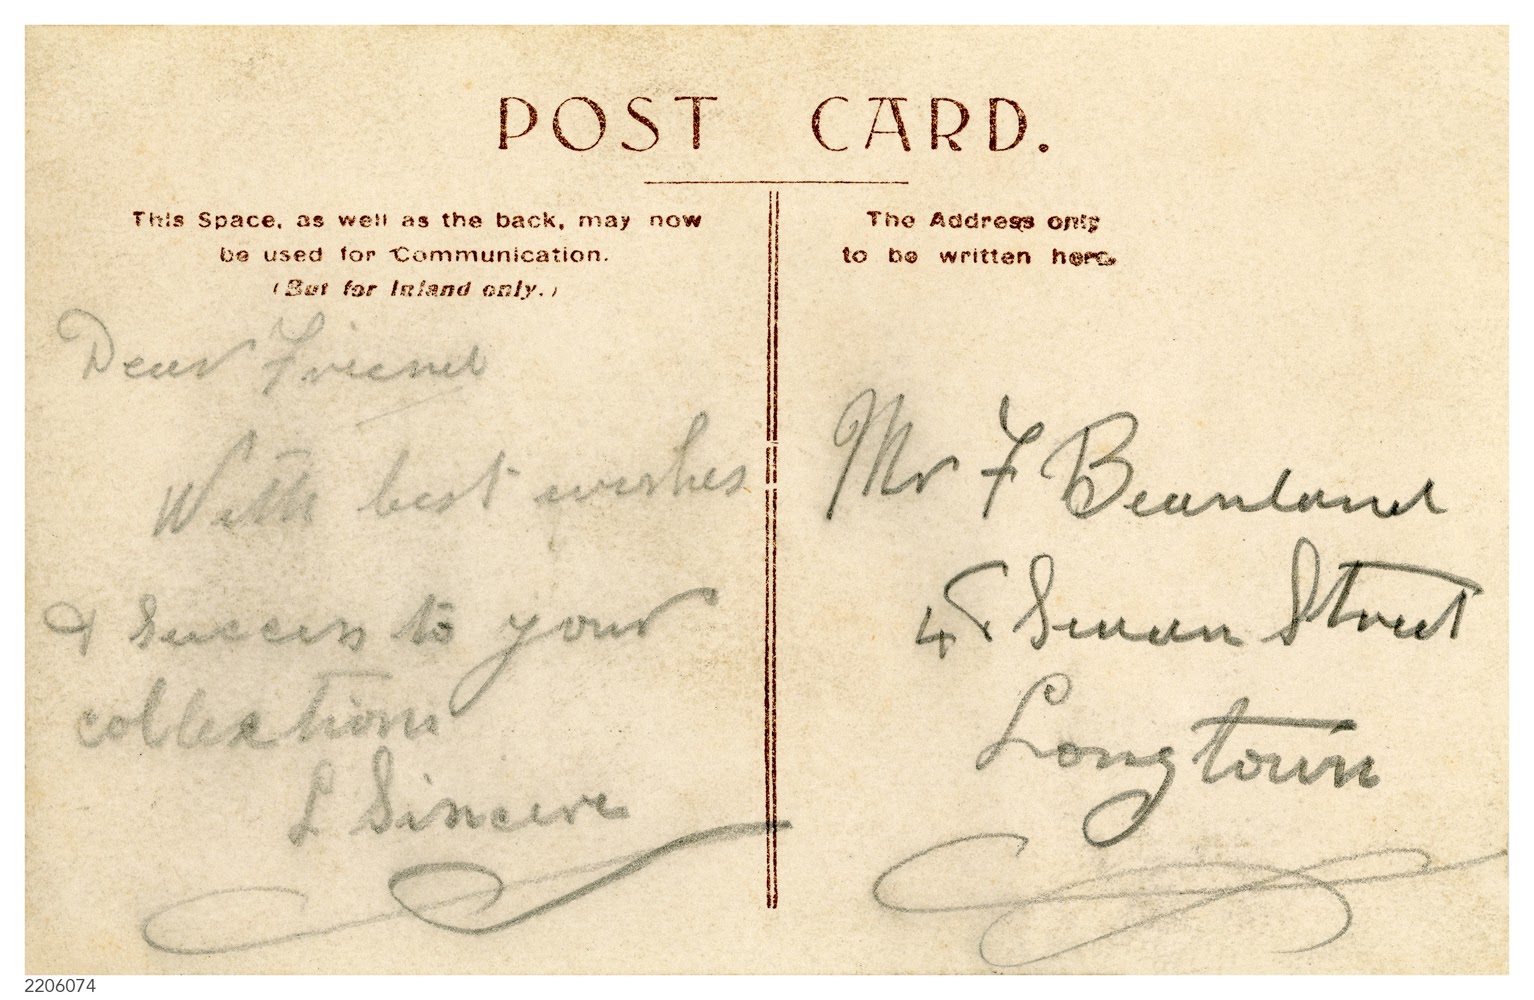 POST CARD.
This Space, as well as the back, may now
be used for Communication.
(But for Inland only.)
Dear Friend
With best wishes
& Success to your
collections
L Sincere
The Address only
to be written here.
Mr F Beanland
Swan Street
Longtown
2206074